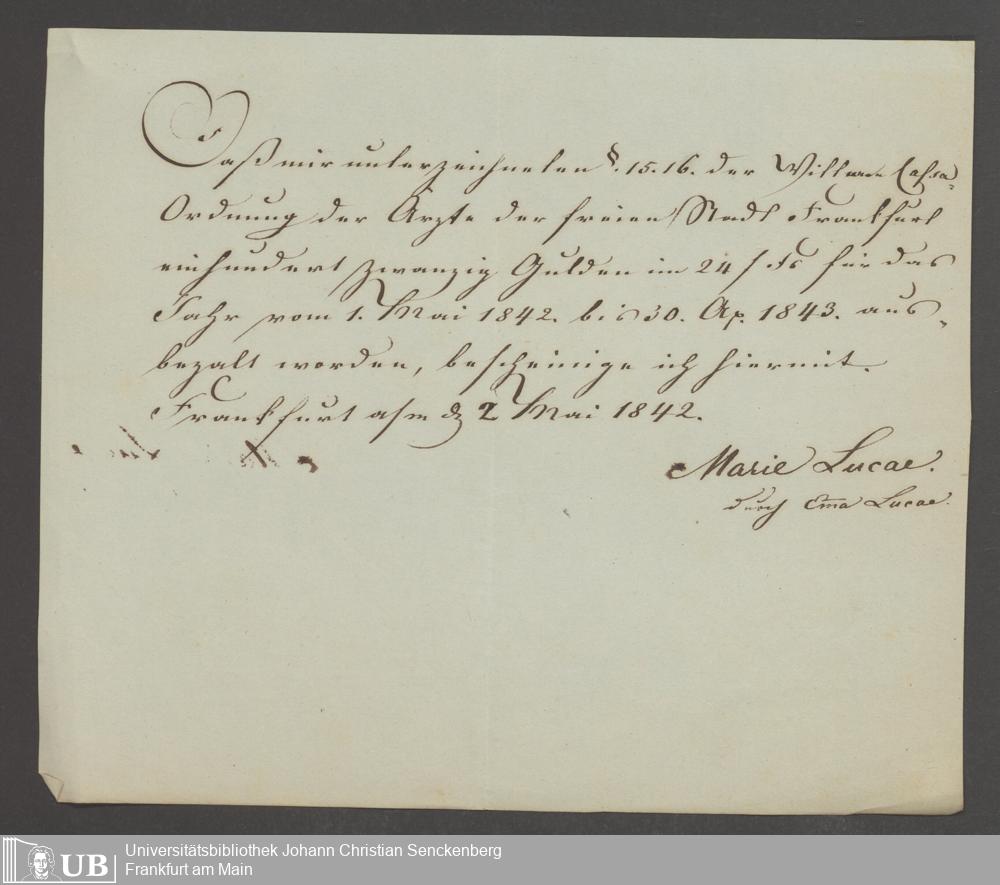 Daß mir unterzeichneten §. 15. 16. der Wittwen Cassa-
Ordnung der Ärzte der freien Stadt Frankfurt
einhundert zwanzig Gulden im 24 f Fs für das
Jahr vom 1. Mai 1842. bis 30. Ap. 1843. aus-
bezalt worden, bescheinige ich hiermit.
Frankfurt a/m d 2 Mai 1842.
Marie Lucae.
durch Ema Lucae.
UB
Universitätsbibliothek Johann Christian Senckenberg
Frankfurt am Main